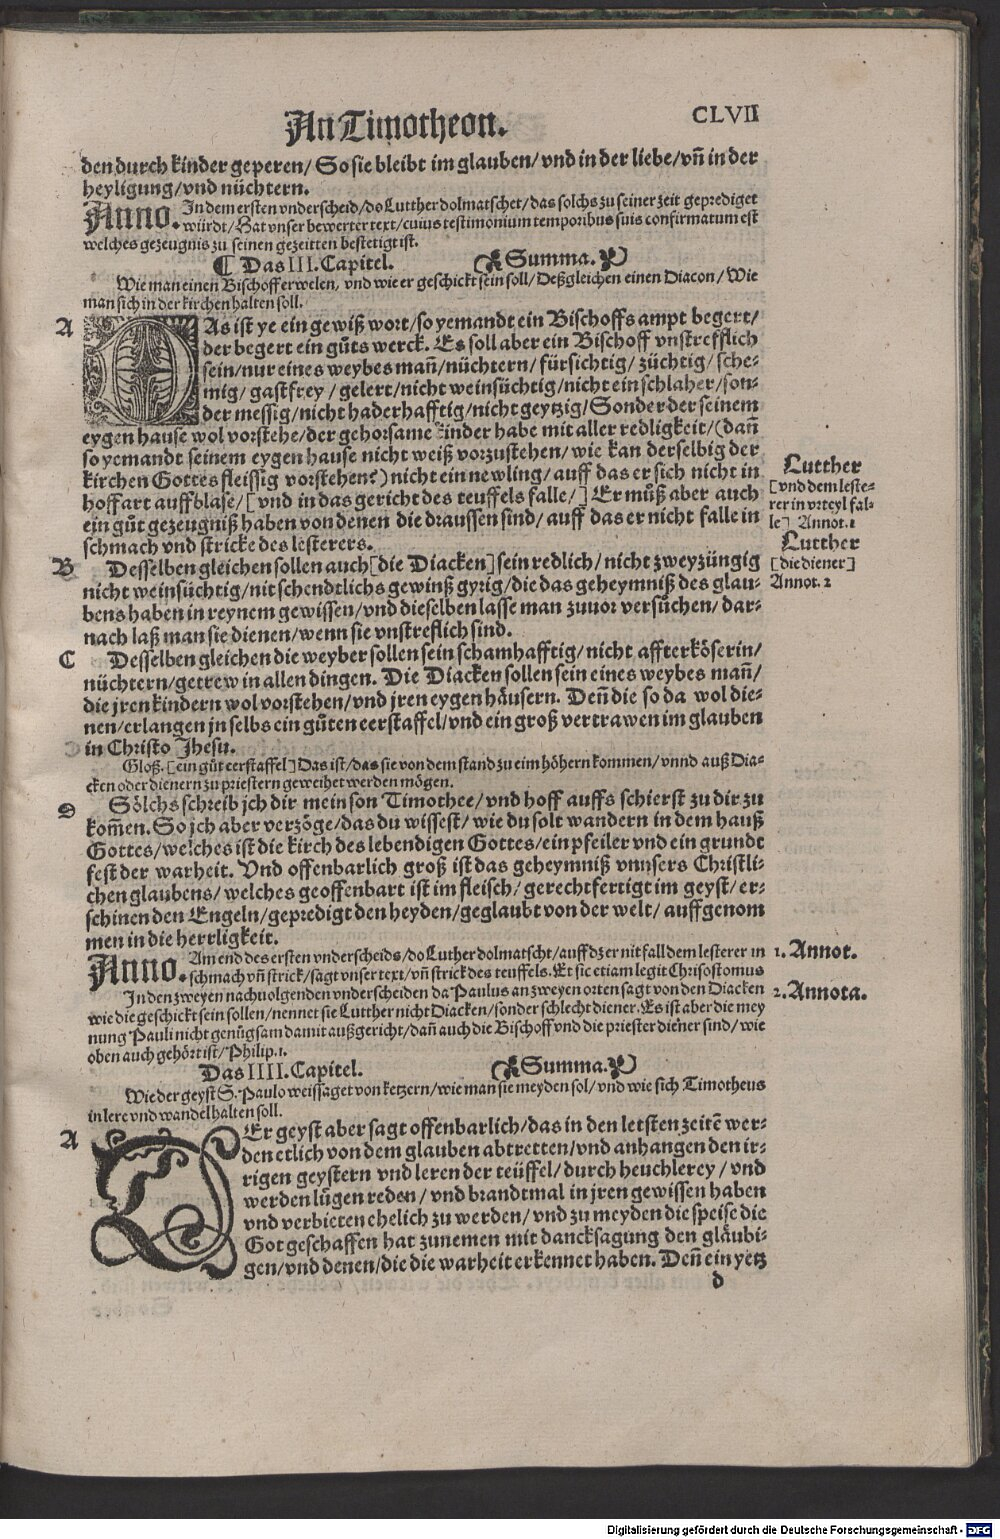 An Timotheon.
CLVII
den durch kinder geperen/ So sie bleibt im glauben/ vnd in der liebe/ vñ in der
heyligung/ vnd nüchtern.
Anno. In dem ersten vnderscheid/ do Lutther dolmatschet/ das solchs zu seiner zeit geprediget
würdt/ Hat vnser bewerter text/ cuius testimonium temporibus suis confirmatum est
welches gezeugnis zu seinen gezeitten bestetigt ist.
¶ Das III. Capitel.
Summa.
Wie man einen Bischoff erwelen, vnd wie er geschickt sein soll/ Deßgleichen einen Diacon/ Wie
man sich in der kirchen halten soll.
A
DAs ist ye ein gewiß wort/ so yemandt ein Bischoffs ampt begert/
der begert ein gůts werck. Es soll aber ein Bischoff vnstrefflich
sein/ nur eines weybes mañ/ nüchtern/ fürsichtig/ züchtig/ sche-
mig/ gastfrey/ gelert/ nicht weinsüchtig/ nicht ein schlaher/ son-
der messig/ nicht haderhafftig/ nicht geytzig/ Sonder der seinem
eygen hause wol vorstehe/ der gehorsame kinder habe mit aller redligkeit/ (dañ
so yemandt seinem eygen hause nicht weiß vorzustehen/ wie kan derselbig der
kirchen Gottes fleissig vorstehen?) nicht ein newling/ auff das er sich nicht in
hoffart auffblase/ [vnd in das gericht des teuffels falle/] Er můß aber auch
ein gůt gezeugniß haben von denen die draussen sind/ auff das er nicht falle in
schmach vnd stricke des lesterers.
Lutther
[vnd dem leste-
rer in vrteyl fal-
le] Annot. 1
Lutther
[die diener]
Annot. 2
B
Desselben gleichen sollen auch [die Diacken] sein redlich/ nicht zweyzüngig
nicht weinsüchtig/ nit schendtlichs gewinß gyrig/ die das geheymniß des glau-
bens haben in reynem gewissen/ vnd dieselben lasse man zuuor versůchen/ dar-
nach laß man sie dienen/ wenn sie vnstreflich sind.
C
Desselben gleichen die weyber sollen sein schamhafftig/ nicht affterköserin/
nüchtern/ getrew in allen dingen. Die Diacken sollen sein eines weybes mañ/
die jren kindern wol vorstehen/ vnd jren eygen häusern. Deñ die so da wol die-
nen/ erlangen jn selbs ein gůten eerstaffel/ vnd ein groß vertrawen im glauben
in Christo Jhesu.
Gloß. [ein gůt eerstaffel] Das ist/ das sie von dem stand zu eim höhern kommen/ vnnd auß Dia-
cken oder dienern zu priestern geweihet werden mögen.
D
Sölchs schreib jch dir mein son Timothee/ vnd hoff auffs schierst zu dir zu
kom̃en. So jch aber verzöge/ das du wissest/ wie du solt wandern in dem hauß
Gottes/ welches ist die kirch des lebendigen Gottes/ ein pfeiler vnd ein grundt
fest der warheit. Vnd offenbarlich groß ist das geheymniß vnnsers Christli-
chen glaubens/ welches geoffenbart ist im fleisch/ gerechtfertigt im geyst/ er-
schinen den Engeln/ gepredigt den heyden/ geglaubt von der welt/ auffgenom
men in die herrligkeit.
Anno. Am end des ersten vnderscheids/ do Luther dolmatscht/ auff dz er nit fall dem lesterer in
schmach vñ strick/ sagt vnser text/ vñ strick des teuffels. Et sic etiam legit Chrisostomus
1. Annot.
In den zweyen nachuolgenden vnderscheiden da Paulus an zweyen orten sagt von den Diacken
wie die geschickt sein sollen/ nennet sie Lutther nicht Diacken/ sonder schlecht diener. Es ist aber die mey
nung Pauli nicht genůgsam damit außgericht/ dañ auch die Bischoff vnd die priester diener sind/ wie
oben auch gehört ist/ Philip. 1.
2. Annota.
Das IIII. Capitel.
Summa.
Wie der geyst S. Paulo weissaget von ketzern/ wie man sie meyden sol/ vnd wie sich Timotheus
in lere vnd wandel halten soll.
A
DEr geyst aber sagt offenbarlich/ das in den letsten zeitẽ wer-
den etlich von dem glauben abtretten/ vnd anhangen den ir-
rigen geystern vnd leren der teüffel/ durch heuchlerey/ vnd
werden lůgen reden/ vnd brandtmal in jren gewissen haben
vnd verbieten ehelich zu werden/ vnd zu meyden die speise die
Got geschaffen hat zunemen mit dancksagung den gläubi-
gen/ vnd denen/ die die warheit erkennet haben. Deñ ein yetz
d
Digitalisierung gefördert durch die Deutsche Forschungsgemeinschaft - DFG